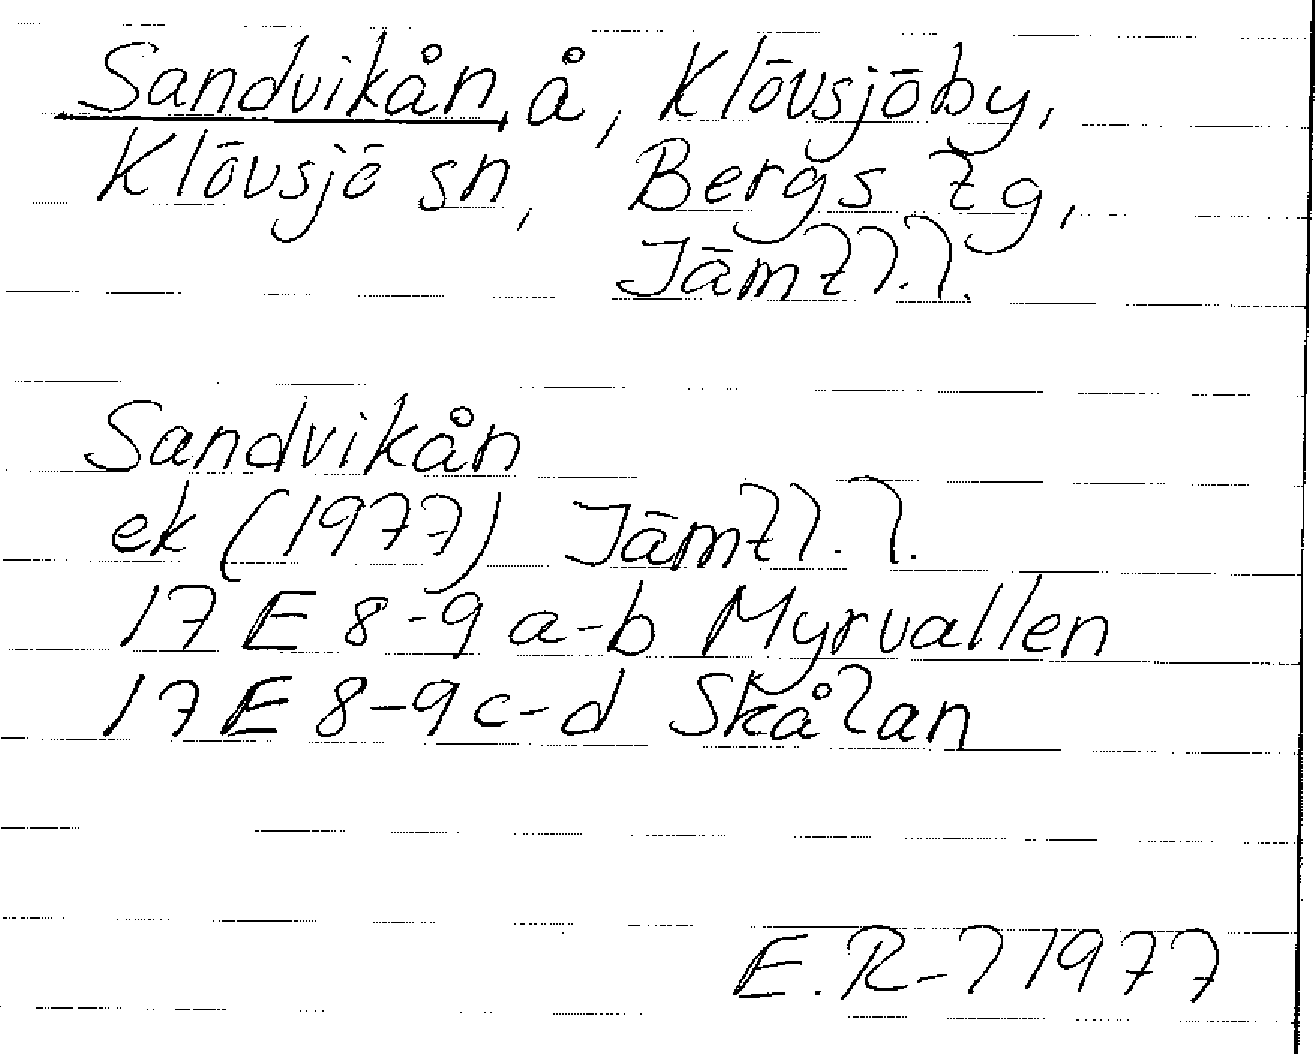 Sandvikån, å, Klövsjöby,
Klövsjö sn, Bergs tg,
Jämtl.l.
Sandvikån
ek (1977) Jämtl.l.
17 E 8-9 a-b Myrvallen
17 E 8-9 c-d Skålan
E. R-l 1977